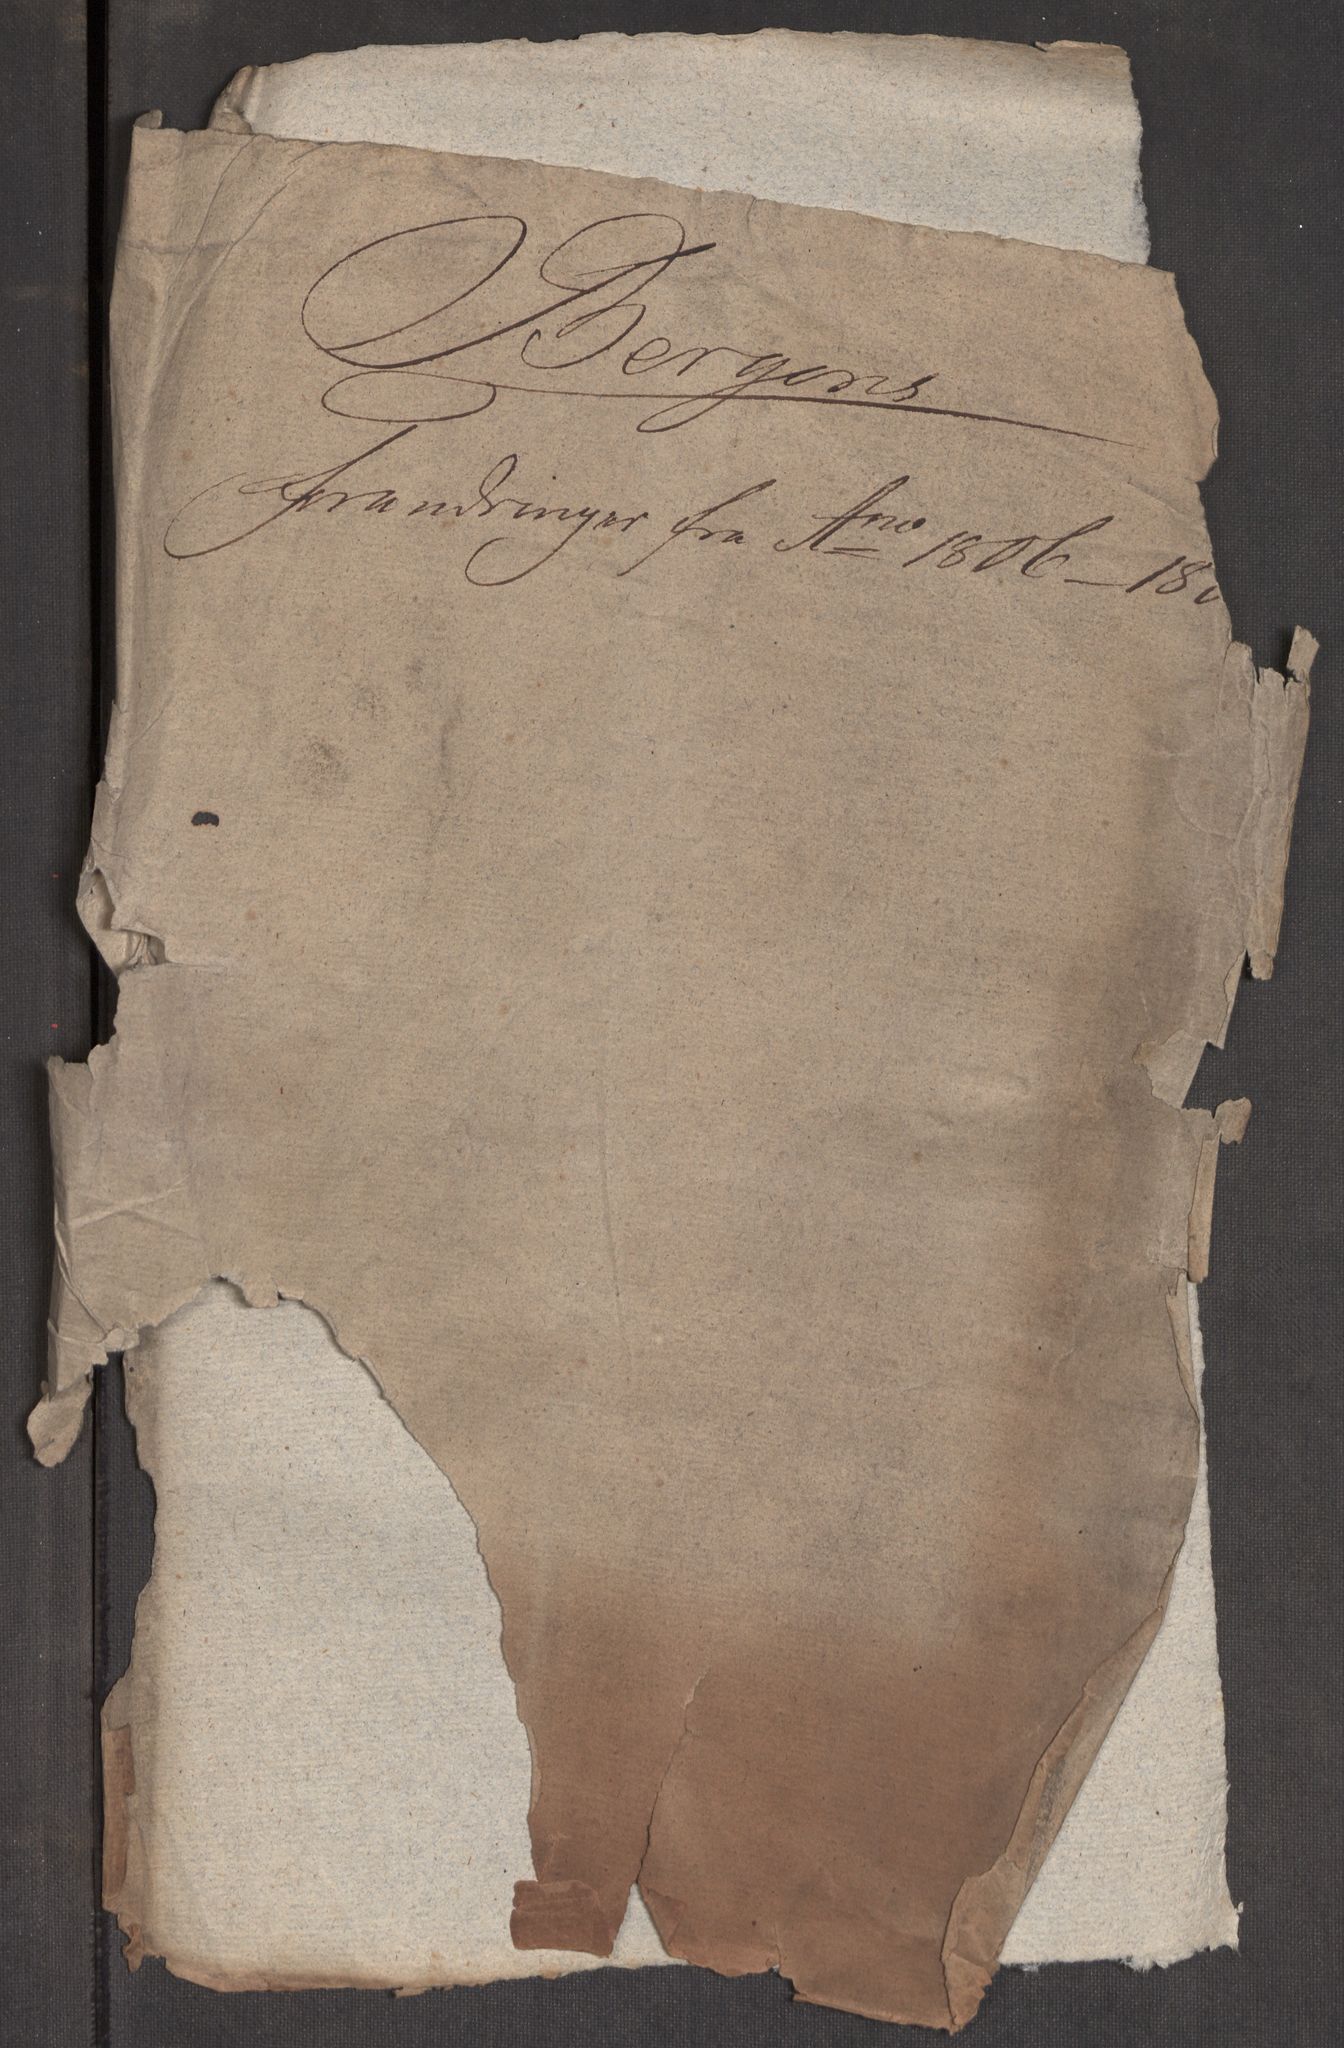 Bergens
forandringer fra Ano 1806 – 180